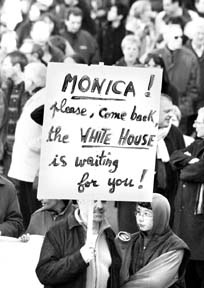 MONICA !
please, come back,
the WHITE HOUSE
is waiting
for you !